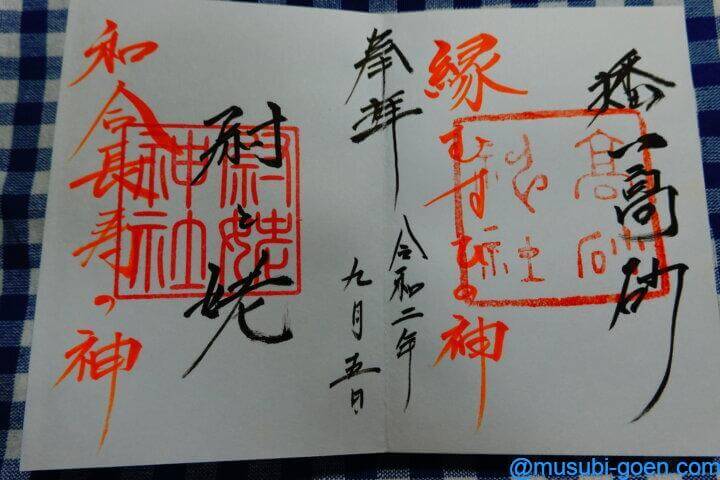 播 高砂
高砂神社
縁むすびの神
奉拝
令和二年
九月五日
尉と姥
尉姥神社
和合長寿の神
@musubi-goen.com